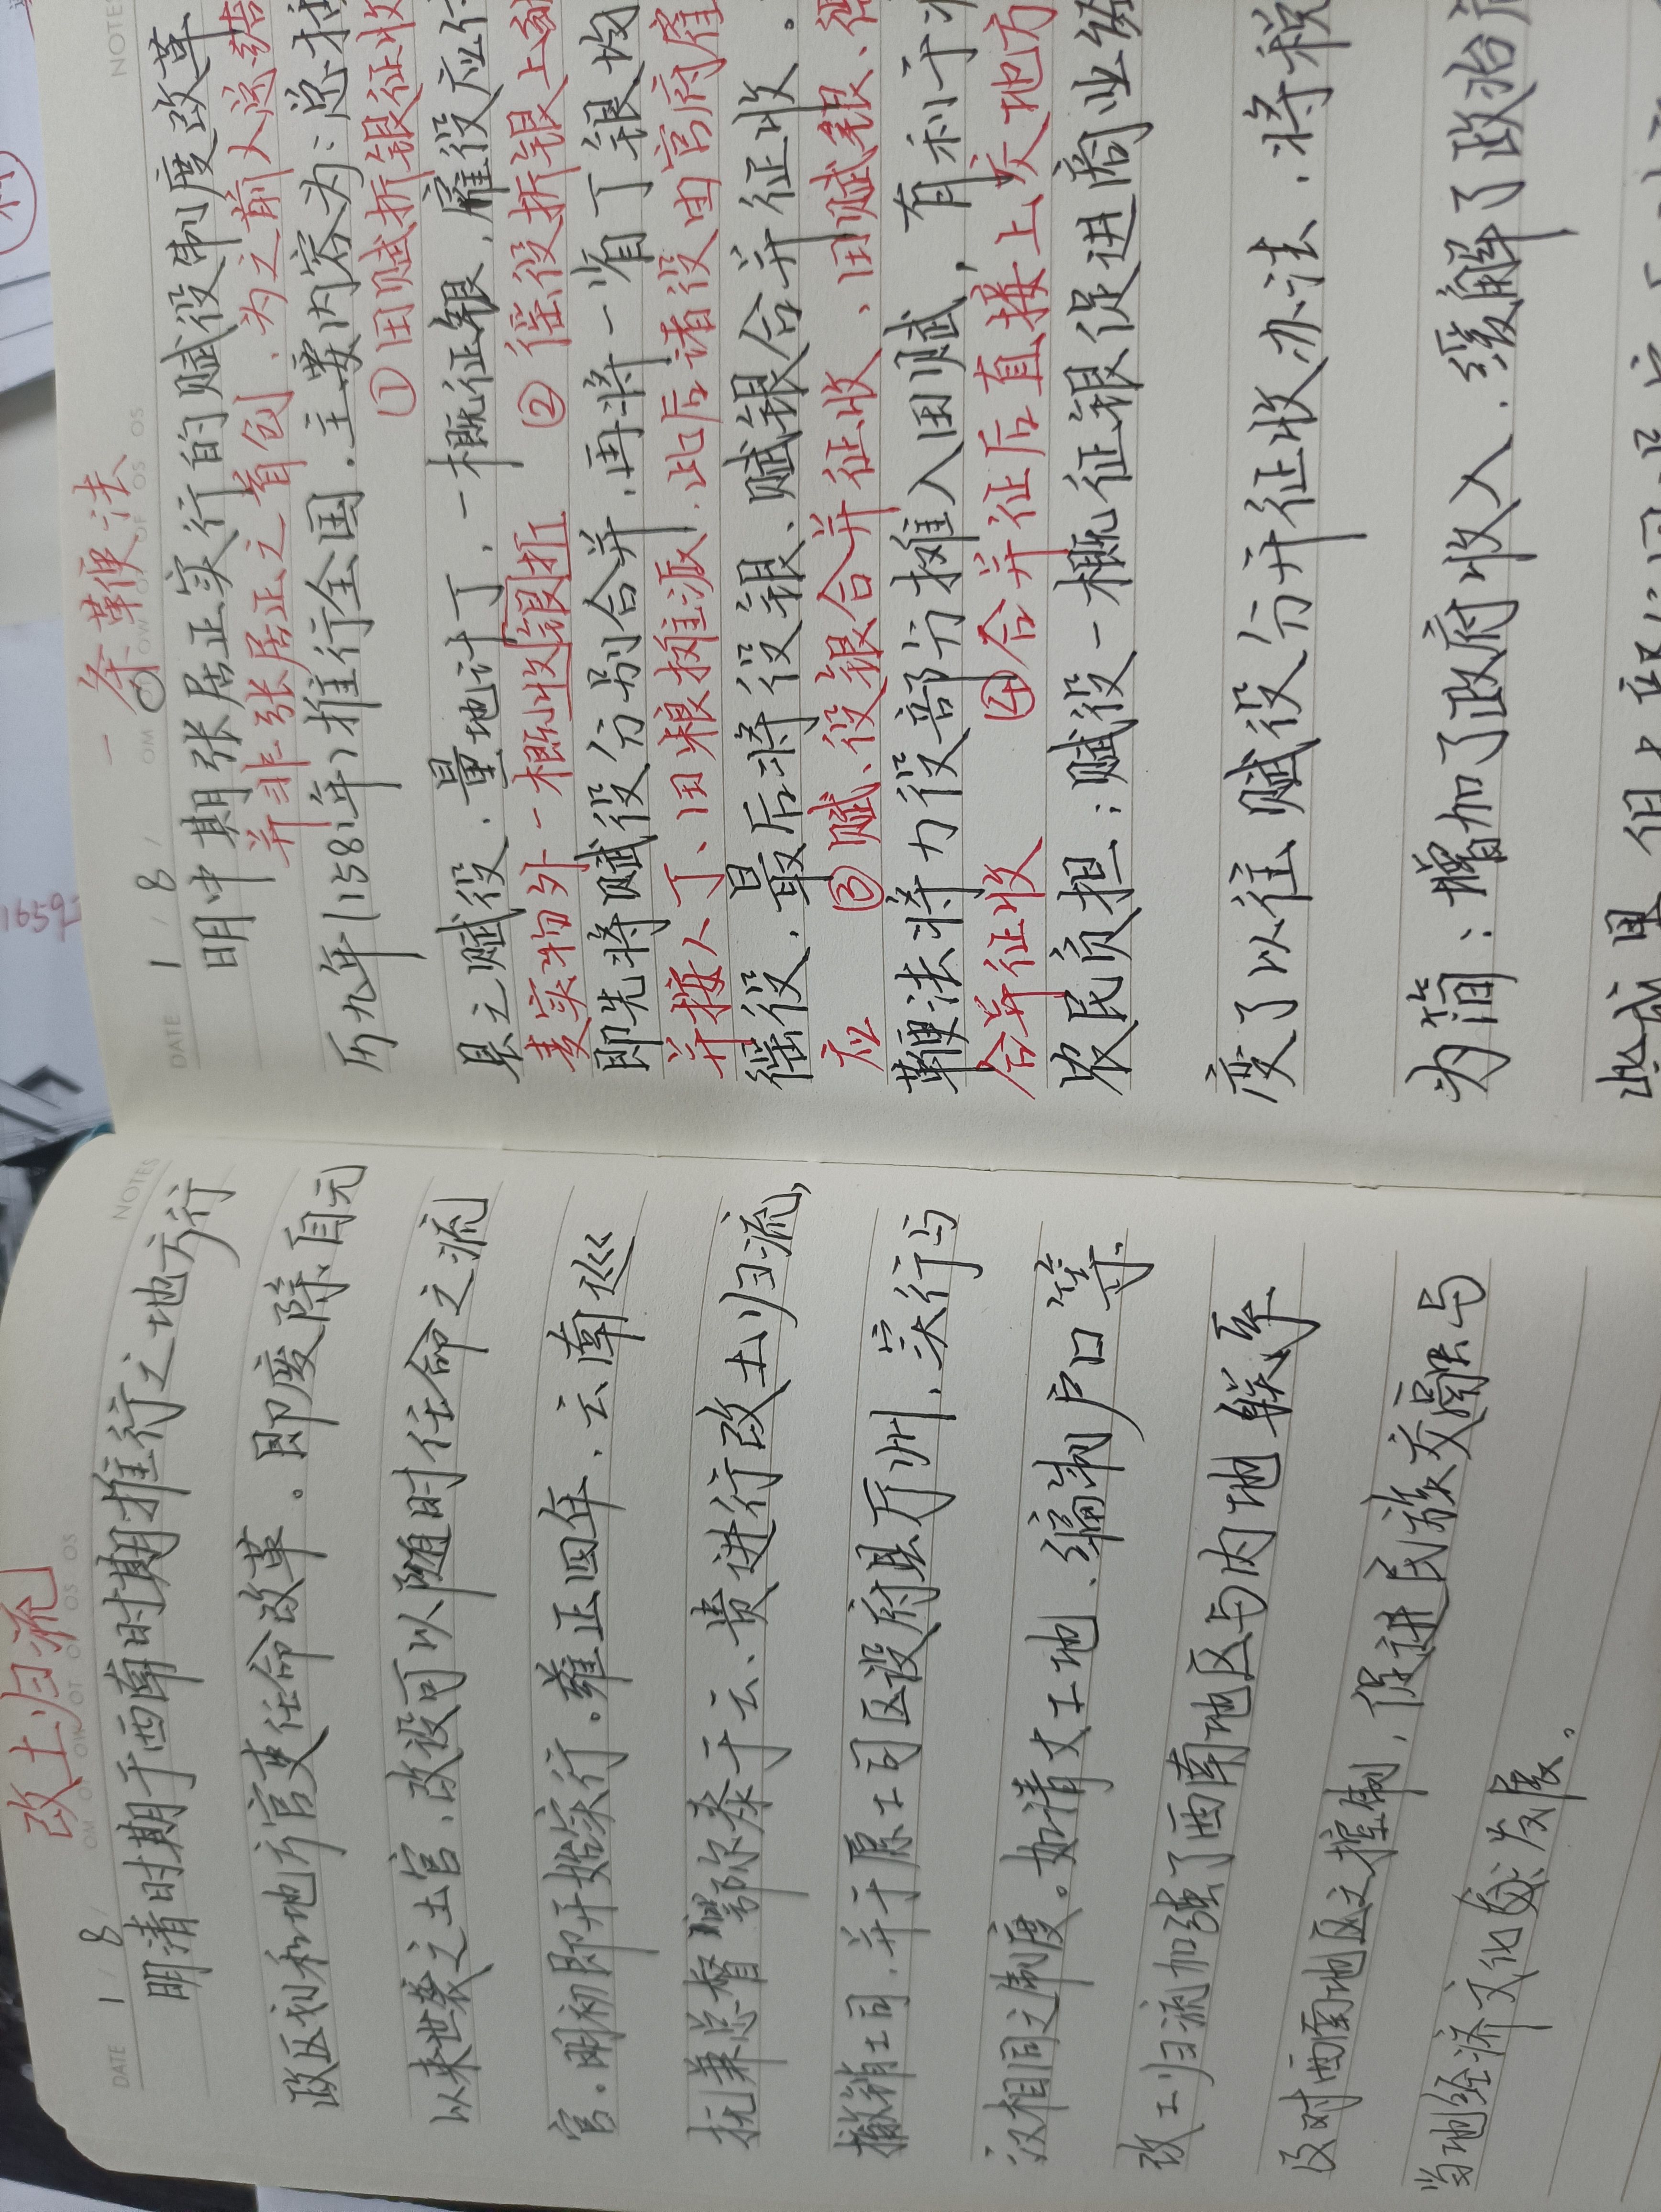 改土归流
DATE 1 / 8 /
NOTES
明清时期于西南时期推行之地方行
政区划和地方官变任命改革。即废除自元
以来世袭之土官、改设可以随时任命之流
官。明初即开始实行。雍正四年、云南巡
抚兼总督鄂尔泰于云、贵进行改土归流，
撤销土司，并于原土司区设府县厅州、实行与
汉相同之制度。如清丈土地、编制户口等.
改土归流加强了西南地区与内地联系
及对西南地区之控制，促进民族交融与
当地经济文化的发展。
一条鞭法
DATE 1 / 8 /
NOTES
明中期张居正实行的赋役制度改革
并非张居正之首创，为之前人总结
历九年(1581年)推行全国.主要内容为:总括
①田赋折银征收
县之赋役、量地计丁，一概征银、雇役应付
麦实物外一概收银折 ②徭役折银上缴
即先将赋役分别合并.再将一省丁银均
并按人丁、田粮摊派.此后诸役由官府雇
徭役，最后将役银、赋银合并征收。
应 ③赋、役银合并征收、田赋银、徭
鞭法将力役部分摊入田赋，有利于
合并征收 ④合并征后直接上交地方
农民负担；赋役一概征银促进商业
变了以往赋役分开征收办法.将税
为简；增加了政府收入.缓解了政治
些成果，但
1659